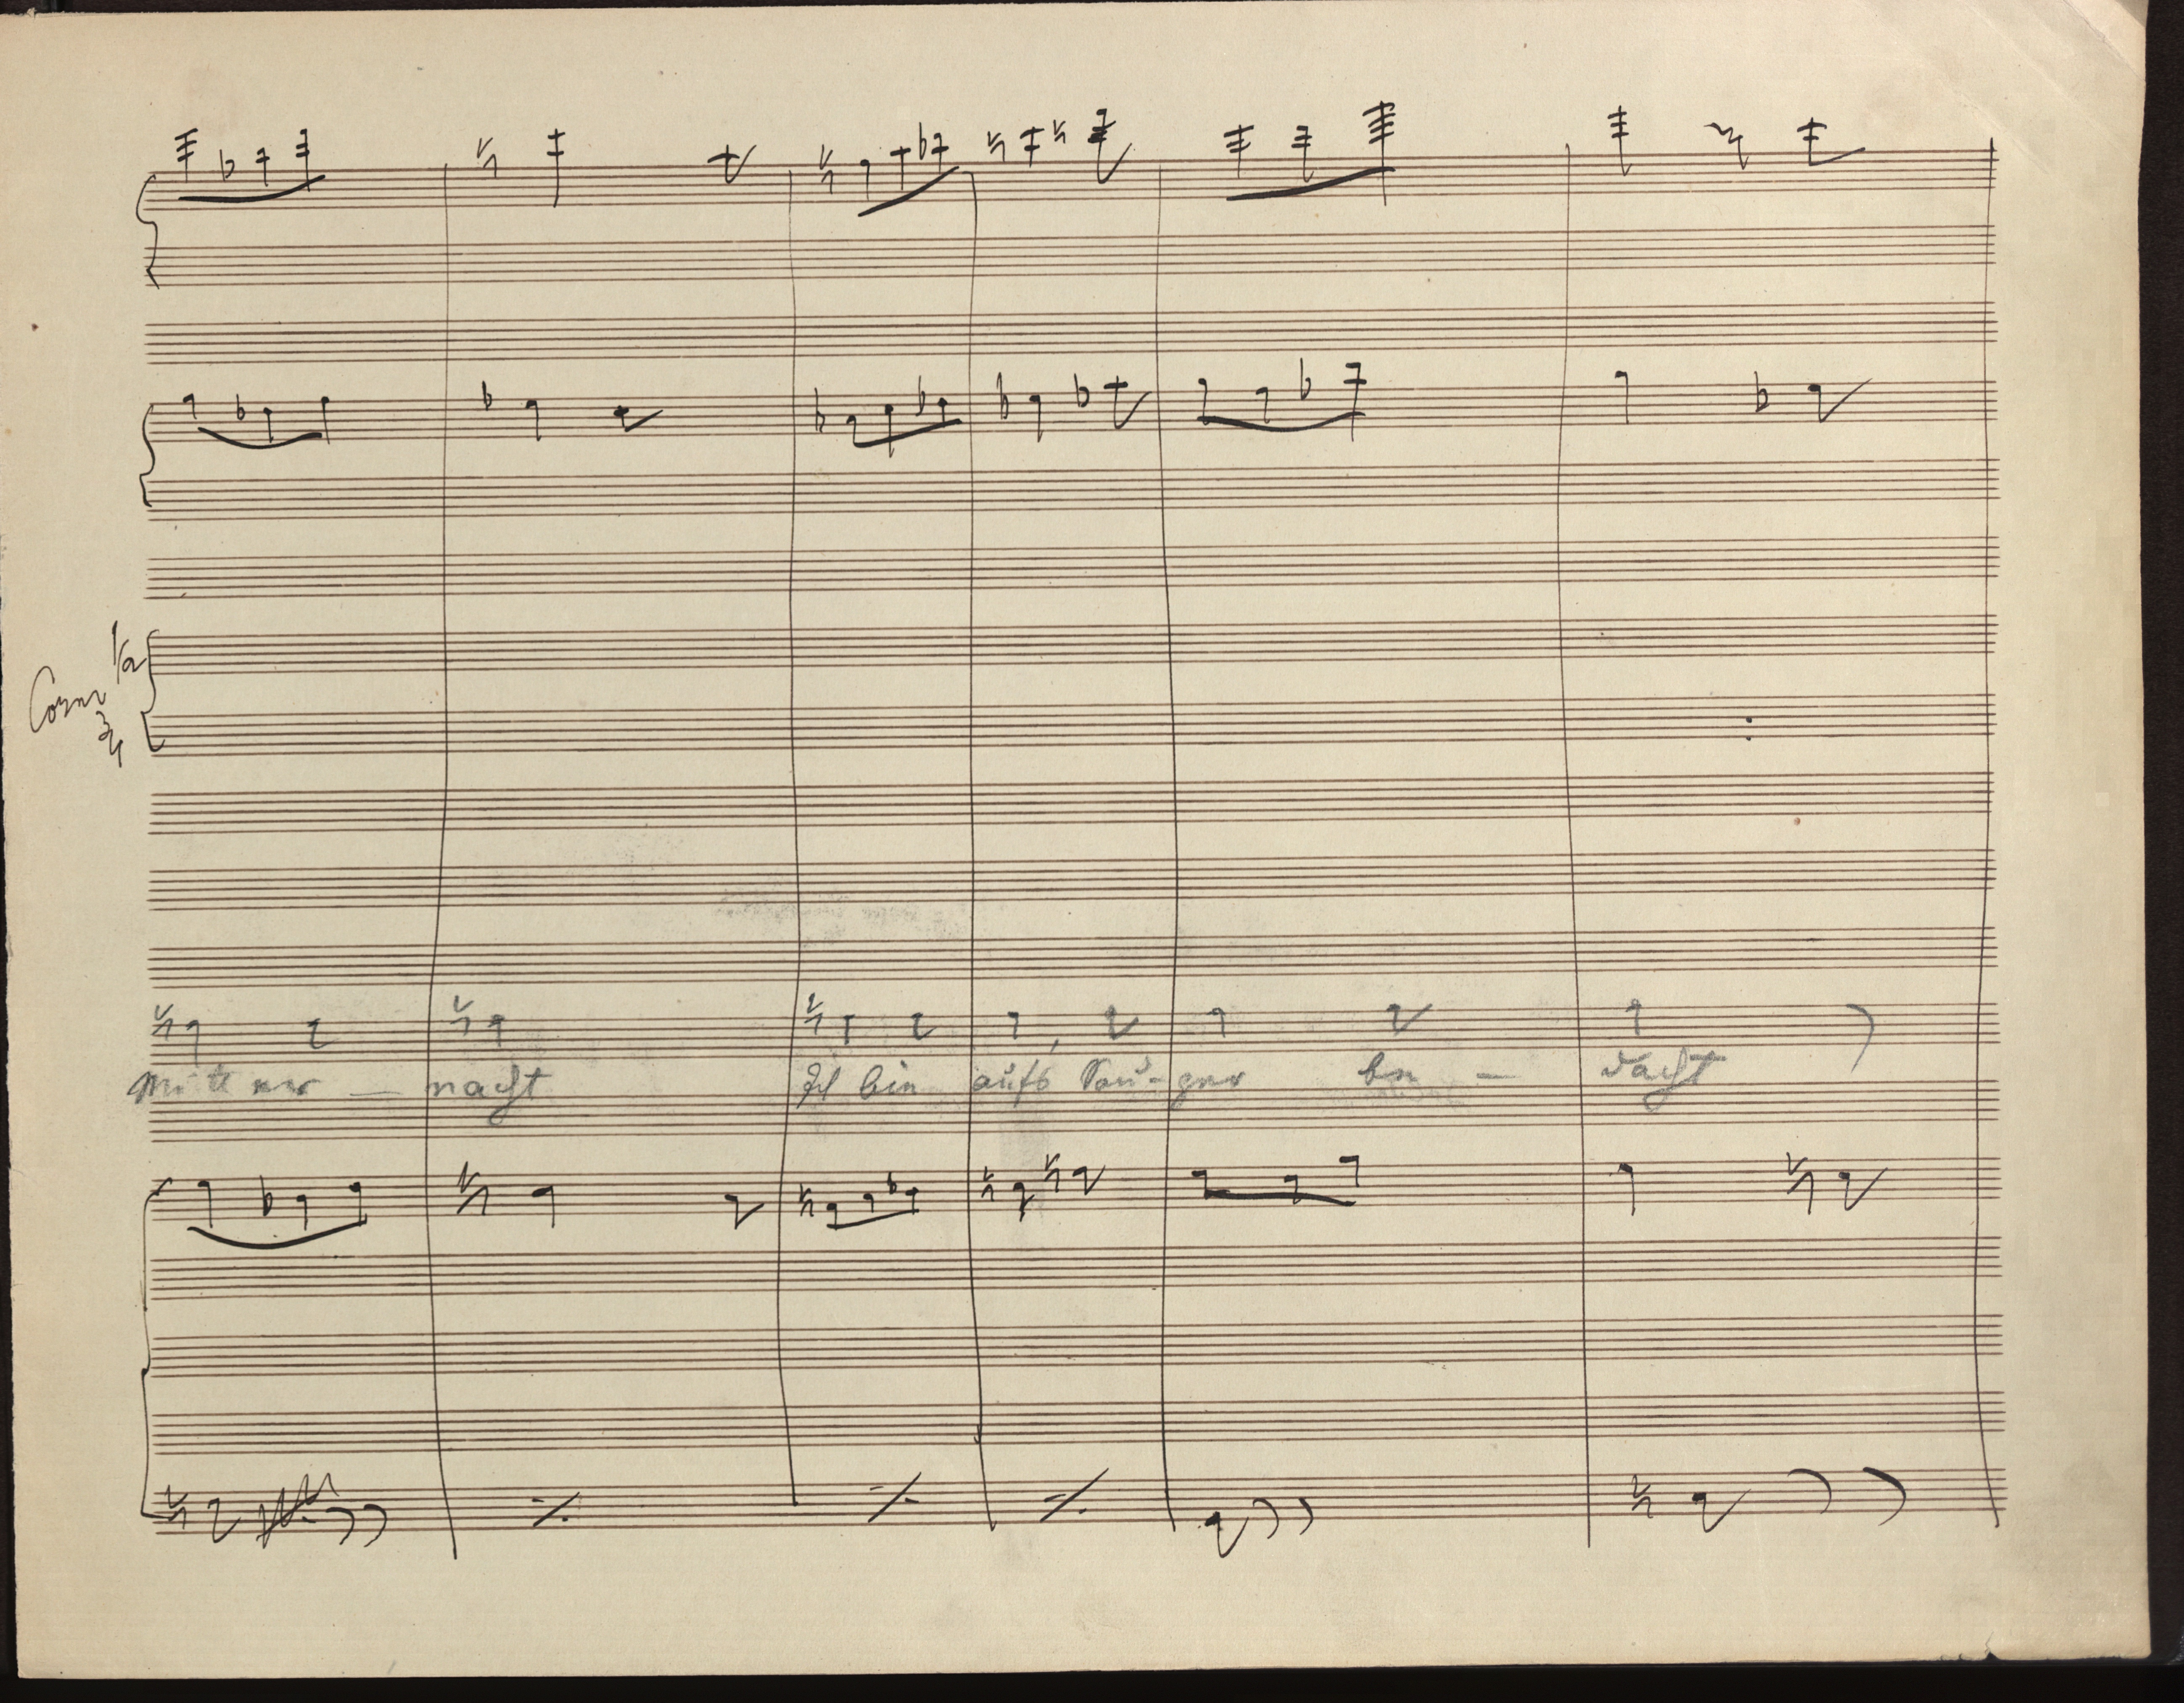 1/2
Corni
3/4
Mitter — nacht Ich bin aufs be — dacht